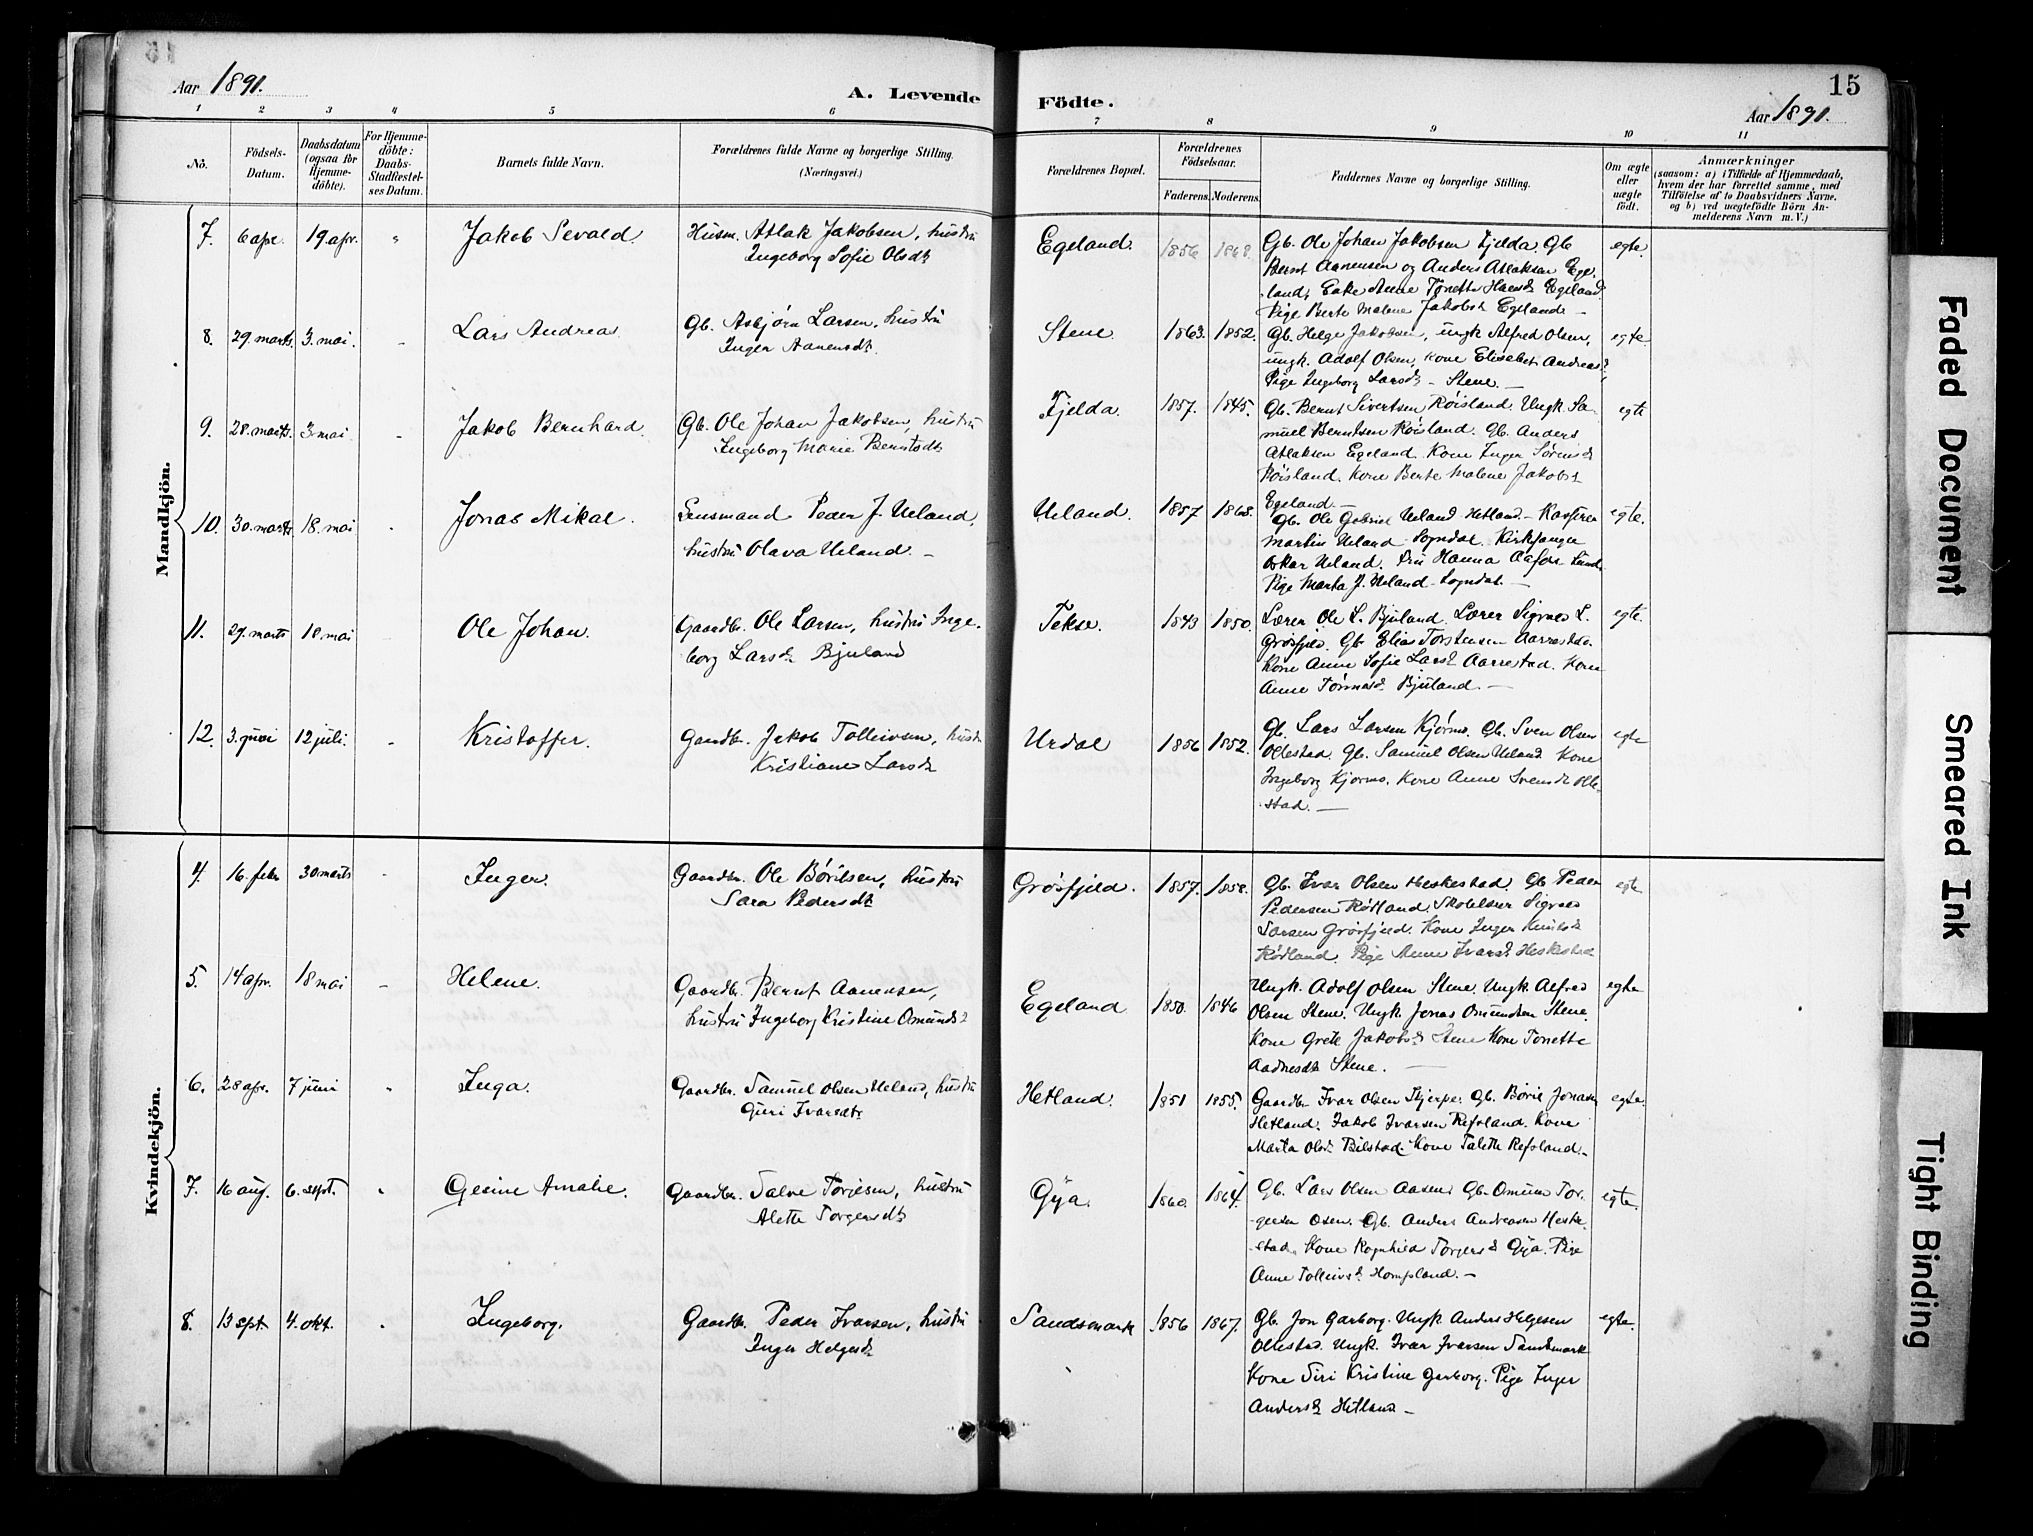 Aar 1891.
A. Levende Födte.
15
Aar 1891.
1 2 3 4 5 6 7 8 9 10 11
No.
Födsels-Datum.
Daabsdatum (ogsaa for Hjemmedöbte).
For Hjemmedöbte: Daabs-Stadfæstelses Datum.
Barnets fulde Navn.
Forældrenes fulde Navne og borgerlige Stilling.
(Næringsvei.)
Forældrenes Bopæl.
Forældrenes Födselsaar.
Faderens. Moderens.
Faddernes Navne og borgerlige Stilling.
Om ægte eller uægte födt.
Anmærkninger
(saasom: a) i Tilfælde af Hjemmedaab,
hvem der har forrettet samme, med
Tilföielse af to Daabsvidners Navne.
og b) ved uægtefödte Börn Anmelderens Navn m. V.)
Mandkjön.
7. 6 apr. 19 apr. " Jakob Sevald. Husm. Atlak Jakobsen, hustru
Ingeborg Sofie Olsdt
Egeland. 1856 1868.
Gb. Ole Johan Jakobsen Fjelda. Gb
Bernt Aanensen og Anders Atlaksen Ege-
land, Enke Anne Tonette Hansd Egeland
Pige Berte Malene Jakobsd Egeland. –
egte.
8. 29. marts. 3. mai. " Lars Andreas. Gb. Asbjørn Larsen, hustru
Inger Aanensdt.
Stene. 1863. 1852.
Gb. Helge Jakobsen, ungk Alfred Olsen,
ungk. Adolf Olsen, kone Elisabet Andreasd,
Pige Ingeborg Larsdt – Stene. –
egte.
9. 28. marts. 3. mai. " Jakob Bernhard. Gb. Ole Johan Jakobsen, hustru
Ingeborg Marie Berntsdt
Fjelda. 1857. 1845.
Gb. Bernt Sivertsen Røisland. Ungk. Sa-
muel Berntsen Røisland. Gb. Anders
Atlaksen Egeland. Kone Inger Sørensdt
Røisland. Kone Berte Malene Jakobst
Egeland. –
egte
10. 30. marts 18. mai " Jonas Mikal. Lensmand Peder J. Ueland,
hustru Olava Ueland. –
Ueland. 1857 1868.
Gb. Ole Gabriel Ueland Hetland – Kasserer
Martin Ueland Sogndal. Kirksanger
Oskar Ueland. Fru Hanna Lund.
Pige Marta J. Ueland Sogndal. –
egte.
11. 29. marts 18 mai " Ole Johan. Gaardbr. Ole Larsen, hustru Inge-
borg Larsdt Bjuland
Tekse. 1843 1850.
Lærer Ole L. Bjuland. Lærer Sigvald L.
Grøsfjeld. Gb. Elias Torstensen Aarrestad.
Kone Anne Sofie Larsd Aarrestad. Kone
Anne Tønnesdt Bjuland. –
egte.
12. 3. juni 12 juli. " Kristoffer. Gaardbr. Jakob Tolleivsen, hustru
Kristiane Larsdt
Urdal 1856 1852.
Gb. Lars Larsen Kjørmo. Gb. Sven Olsen
Ollestad. Gb. Samuel Olsen Ueland Kone
Ingeborg Kjørmo. Kone Anne Svensdt Olle-
stad. –
egte
Kvindekjön.
4. 16. febr 30 marts " Inger. Gaardbr. Ole Børilsen, hustru
Sara Pedersdt
Grøsfjeld. 1857. 1858.
Gb. Ivar Olsen Heskestad. Gb Peder
Pedersen Rødland. Skolelærer Sigvald
Larsen Grøsfjeld. Kone Inger
Rødland. Pige Anne Ivarsd Heskestad
egte
5. 14 apr. 18 mai " Helene. Gaardbr. Bernt Aanensen,
hustru Ingeborg Kristine Omundsd
Egeland 1850. 1846
Ungk. Adolf Olsen Stene. Ungk. Alfred
Olsen Stene. Ungk Jonas Omundsen Stene.
Kone Grete Jakobsd Stene Kone Tonette
Aadnesdt Stene. –
egte
6. 28 apr. 7 juni " Inga. Gaardbr. Samuel Olsen Ueland, hustru
Guri Ivarsdt.
Hetland. 1851 1855.
Gaardbr Ivar Olsen Skjerpe. Gb. Børil Jonasen
Hetland. Jakob Ivarsen Refsland. Kone
Marta Olsdt Bilstad. Kone Talette Refsland. –
egte.
7. 16 aug. 6. sept. " Gesine Amalie. Gaardbr. Salve Torjesen, hustru
Alette Torgersdt
Gya. 1860. 1864.
Gb. Lars Olsen Aasen. Gb. Omund Tor-
gersen Osen. Gb. Anders Andreasen Heske-
stad. Kone Ragnhild Torgersd Gya. Pige
Anne Tolleivsdt Hompland. –
egte.
8. 13 sept. 4. okt. " Ingeborg. Gaardbr. Peder Ivarsen, hustru
Inger Helgesdt
Sandsmark 1856 1867.
Gb. Jon Garborg. Ungk Anders Helgesen
Ollestad. Ungk. Ivar Ivarsen Sandsmark
Kone Siri Kristine Garborg. Pige Inger
Andersd Hetland –
egte.
Faded Document
Smeared Ink
Tight Binding